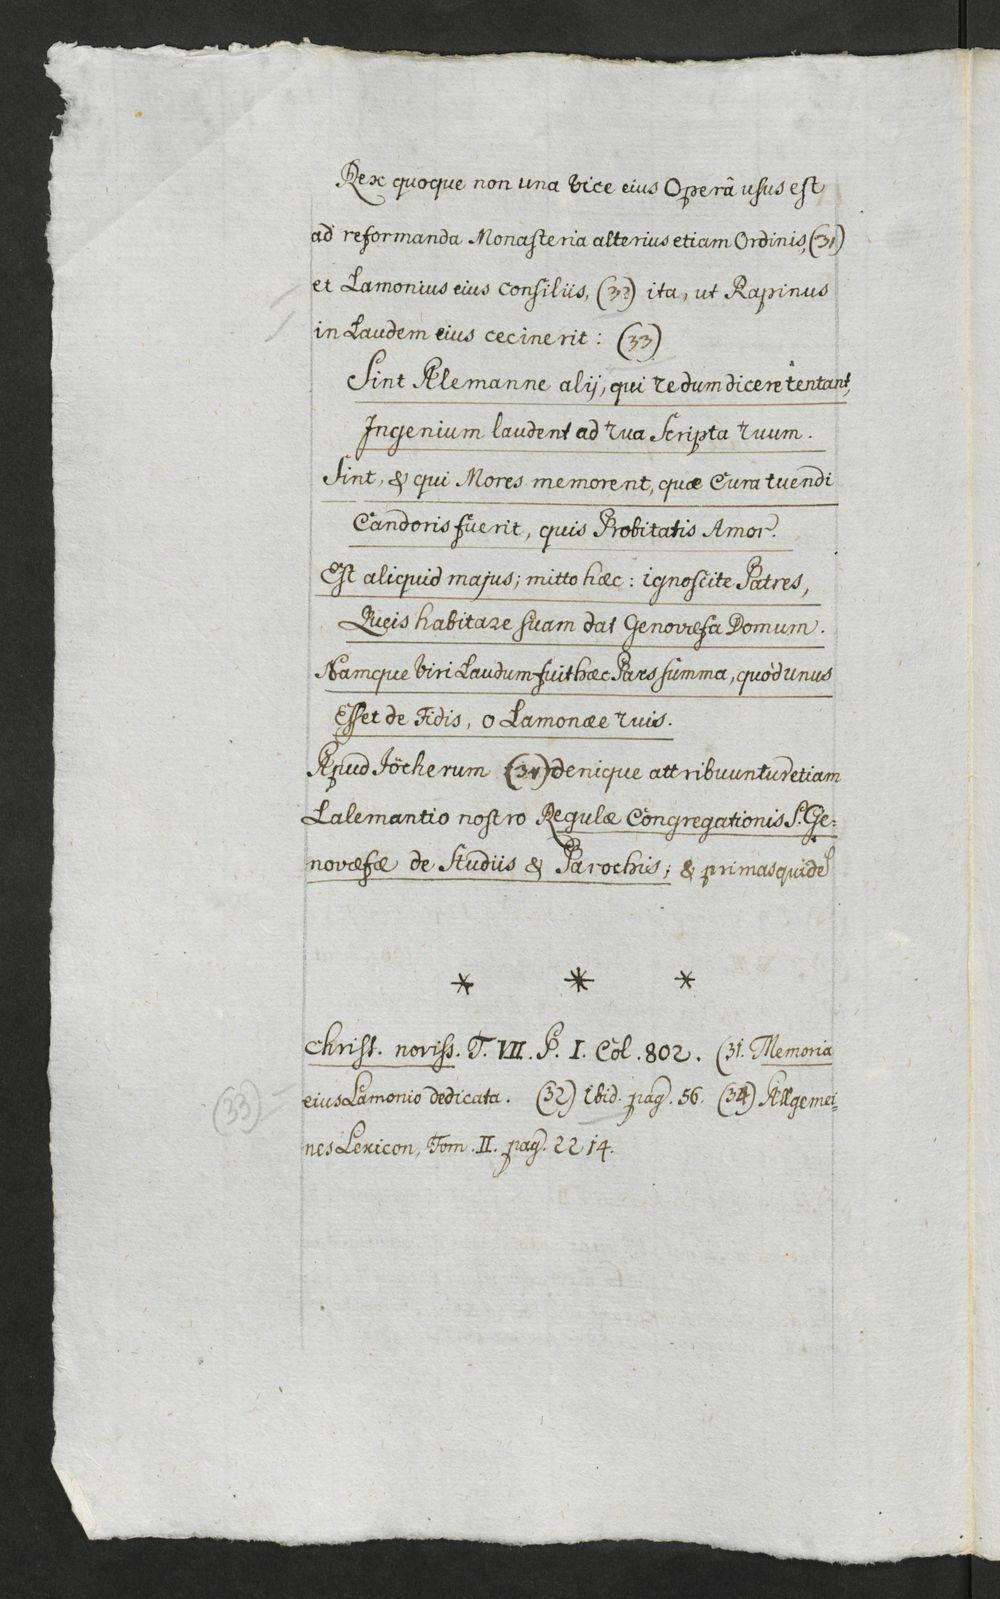 Rex quoque non una vice eius Operâ usus est
ad reformanda Monasteria alterius etiam Ordinis, (31)
et Lamonius eius consiliis, (32) ita, ut Rapinus
in Laudem eius cecinerit: (33)
Sint Alemanne alij, qui te dum dicere tentant,
Ingenium laudent ad tua Scripta tuum.
Sint, & qui Mores memorent, quæ Cura tuendi
Candoris fuerit, quis Probitatis Amor.
Est aliquid majus; mitto hæc: ignoscite Patres,
Queis habitare suam dat Genovefa Domum.
Namque Viri Laudum fuit hæc Pars summa, quòd unus
Esset de Fidis, o Lamonæe tuis.
Apud Jöcherum (34) denique attribuuntur etiam
Lalemantio nostro Regulæ Congregationis S. Ge:
novefæ de Studiis & Parochis; & primas quidē
* * *
Christ. noviss. T. VII. P. I. Col. 802. (31. Memoria
eius Lamonio dedicata. (32) ibid. pag. 56. (34) Allgemei=
(33) =
nes Lexicon, Tom. II. pag. 2214.